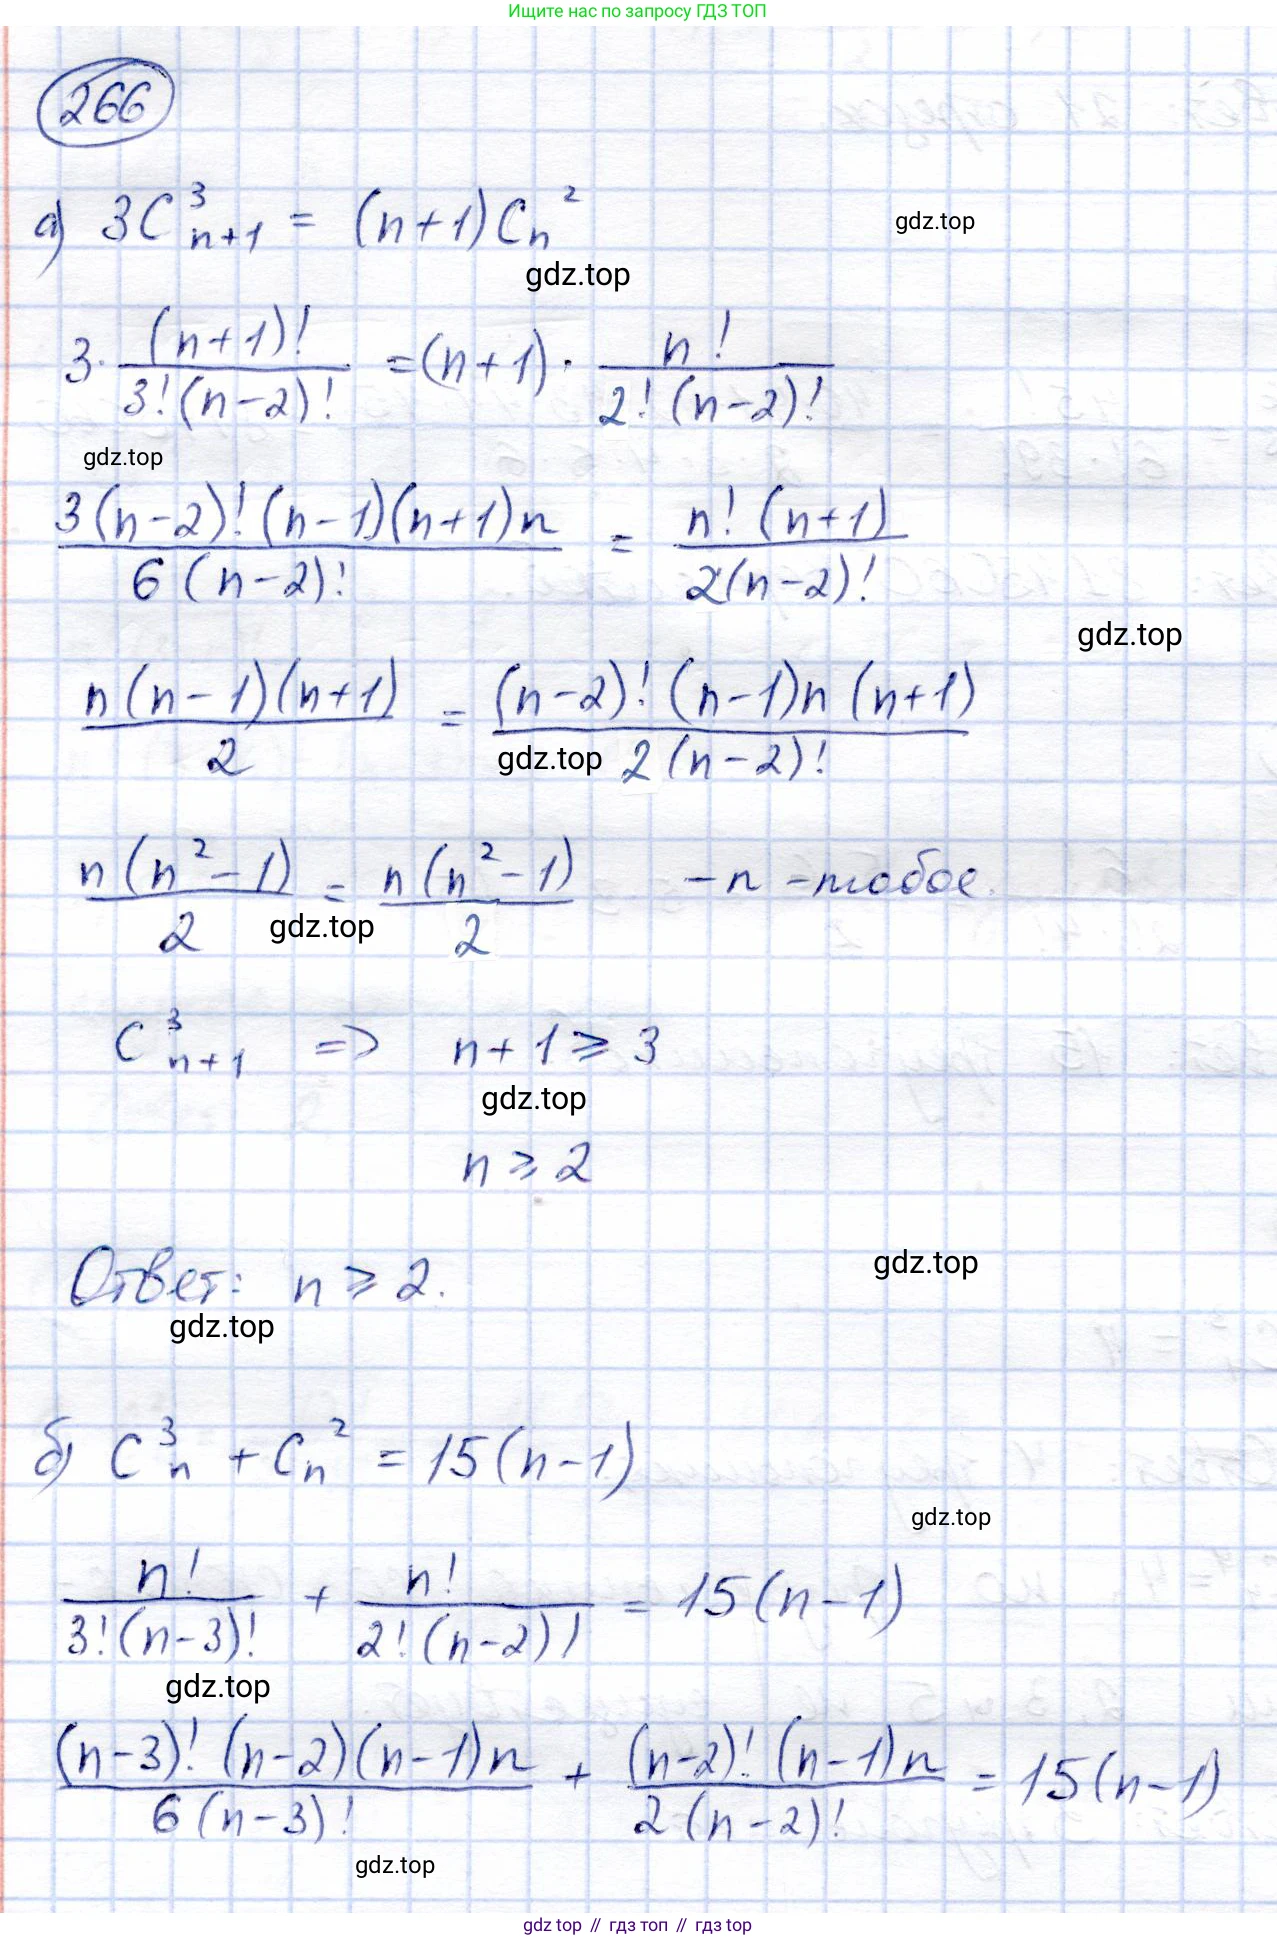 Ищите нас по запросу ГДЗ ТОП
266
а) 3C³ₙ₊₁ = (n+1)Cₙ²
gdz.top
gdz.top
3· (n+1)! / 3!(n-2)! = (n+1) · n! / 2!(n-2)!
gdz.top
3(n-2)!(n-1)(n+1)n / 6(n-2)! = n!(n+1) / 2(n-2)!
gdz.top
n(n-1)(n+1) / 2 = (n-2)!(n-1)n(n+1) / 2(n-2)!
gdz.top
n(n²-1) / 2 = n(n²-1) / 2 - n - любое.
gdz.top
C³ₙ₊₁ => n+1 ⩾ 3
gdz.top
n ⩾ 2
Ответ: n ⩾ 2.
gdz.top
gdz.top
б) C³ₙ + Cₙ² = 15(n-1)
gdz.top
n! / 3!(n-3)! + n! / 2!(n-2)! = 15(n-1)
gdz.top
(n-3)!(n-2)(n-1)n / 6(n-3)! + (n-2)!(n-1)n / 2(n-2)! = 15(n-1)
gdz.top
gdz top // гдз топ // гдз top